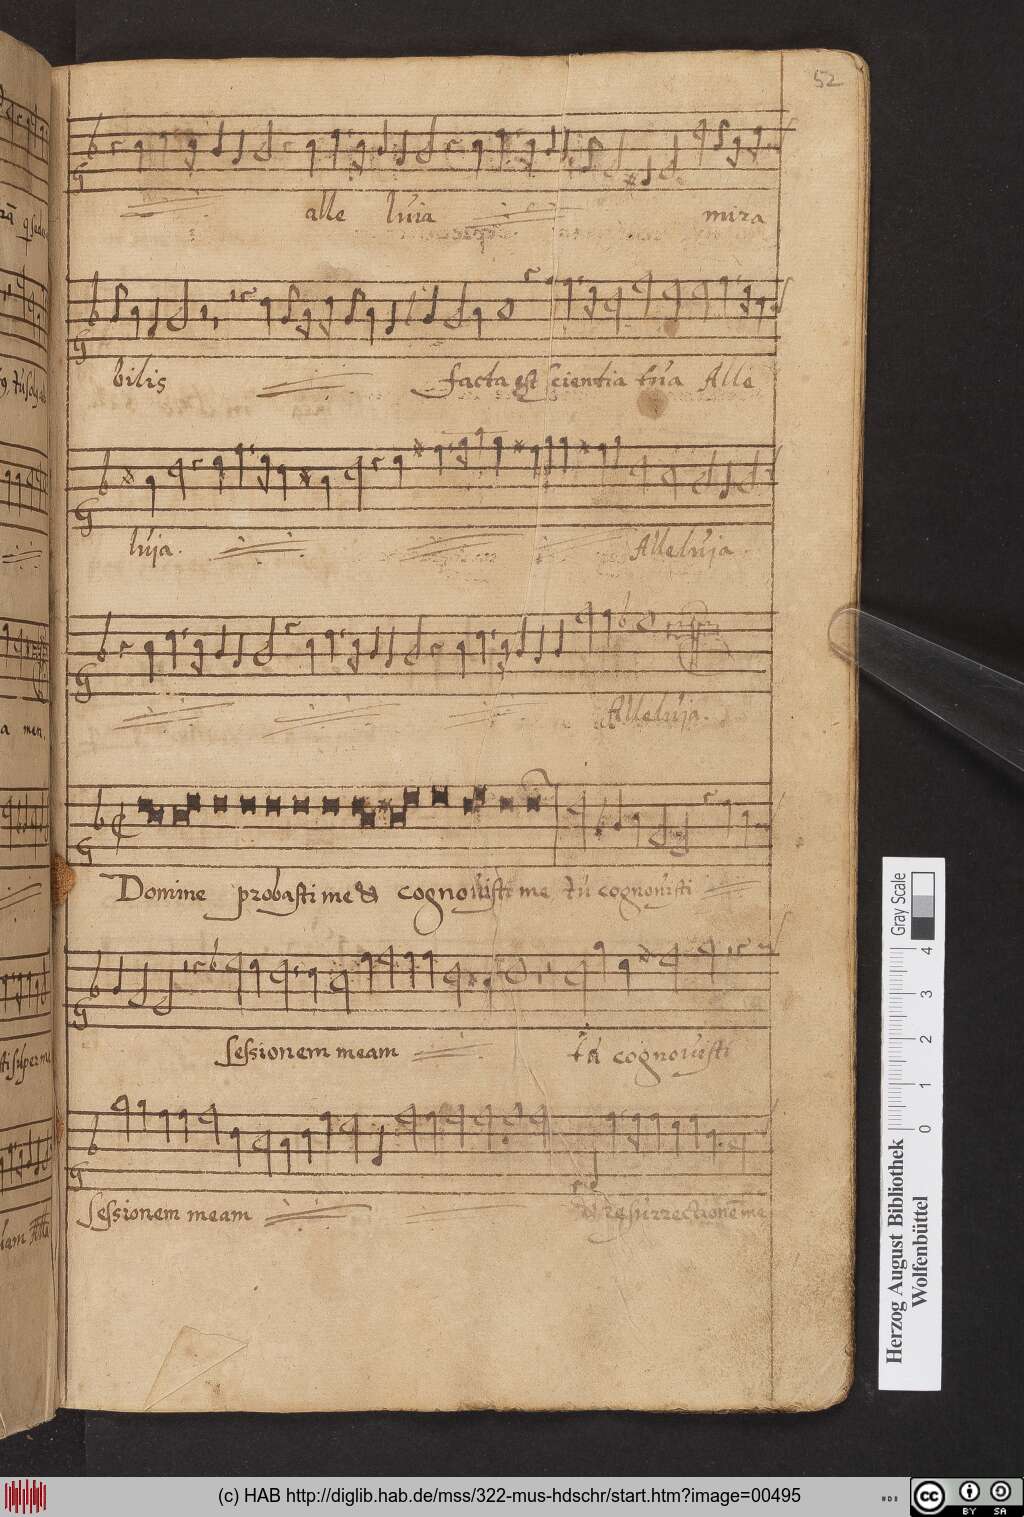 52
alle luia mira
bilis facta est scientia tua Alle
luja. Alleluja
Alleluja.
Domine probasti me & cognovisti me tu cognovisti
sessionem meam tu cognovisti
sessionem meam & resurrectionē me
a men.
Gray Scale
0 1 2 3 4
Herzog August Bibliothek
Wolfenbüttel
(c) HAB http://diglib.hab.de/mss/322-mus-hdschr/start.htm?image=00495
cc BY SA